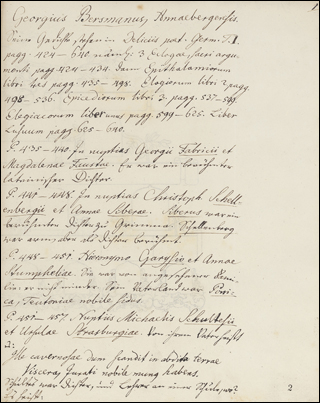 1
Georgius Bersmanus, Annabergensis.
Seine Gedichte stehen in Deliciis poet. Germ. T. I.
pagg. 424 – 640 nämlich: 3 Eclogae, sacri argu-
menti pagg. 424 – 434. dann Epithalamiorum
libri pagg. 435 – 498. Elogiorum libri 2 pagg.
498 – 536. Epicediorum libri 3. pagg. 537 – 599.
Elegiacorum liber unus pagg. 599 – 625. Liber
Lusuum pagg. 625 – 640.
P. 435 – 440. In nuptias Georgii Fabricii et
Magdalenae Faustae. Er war ein berühmter
lateinischer Dichter.
P. 440 – 448. In nuptias Christoph. Schell-
enbergii et Annae Siberae. Siberus war ein
berühmter Dichter zu Grimma. Schellenberg
war auch als Dichter berühmt.
P. 448 – 451 Hieronymo Garysio et Annae
Humpholiae. Sie war von angesehener Fami-
lie er nicht minder. Sein Vaterland war
Teutoniae nobile sidus.
P. 451 – 457. Nuptiis Michaelis Schultesii
et Ursulae Strasburgiae. Von ihrem Vater heißt
es:
Ille cavernosae dum pandit in abdita terrae
Viscera, parati nobile munus habens.
war Dichter, und Lehrer an einer Schule, wo?
2